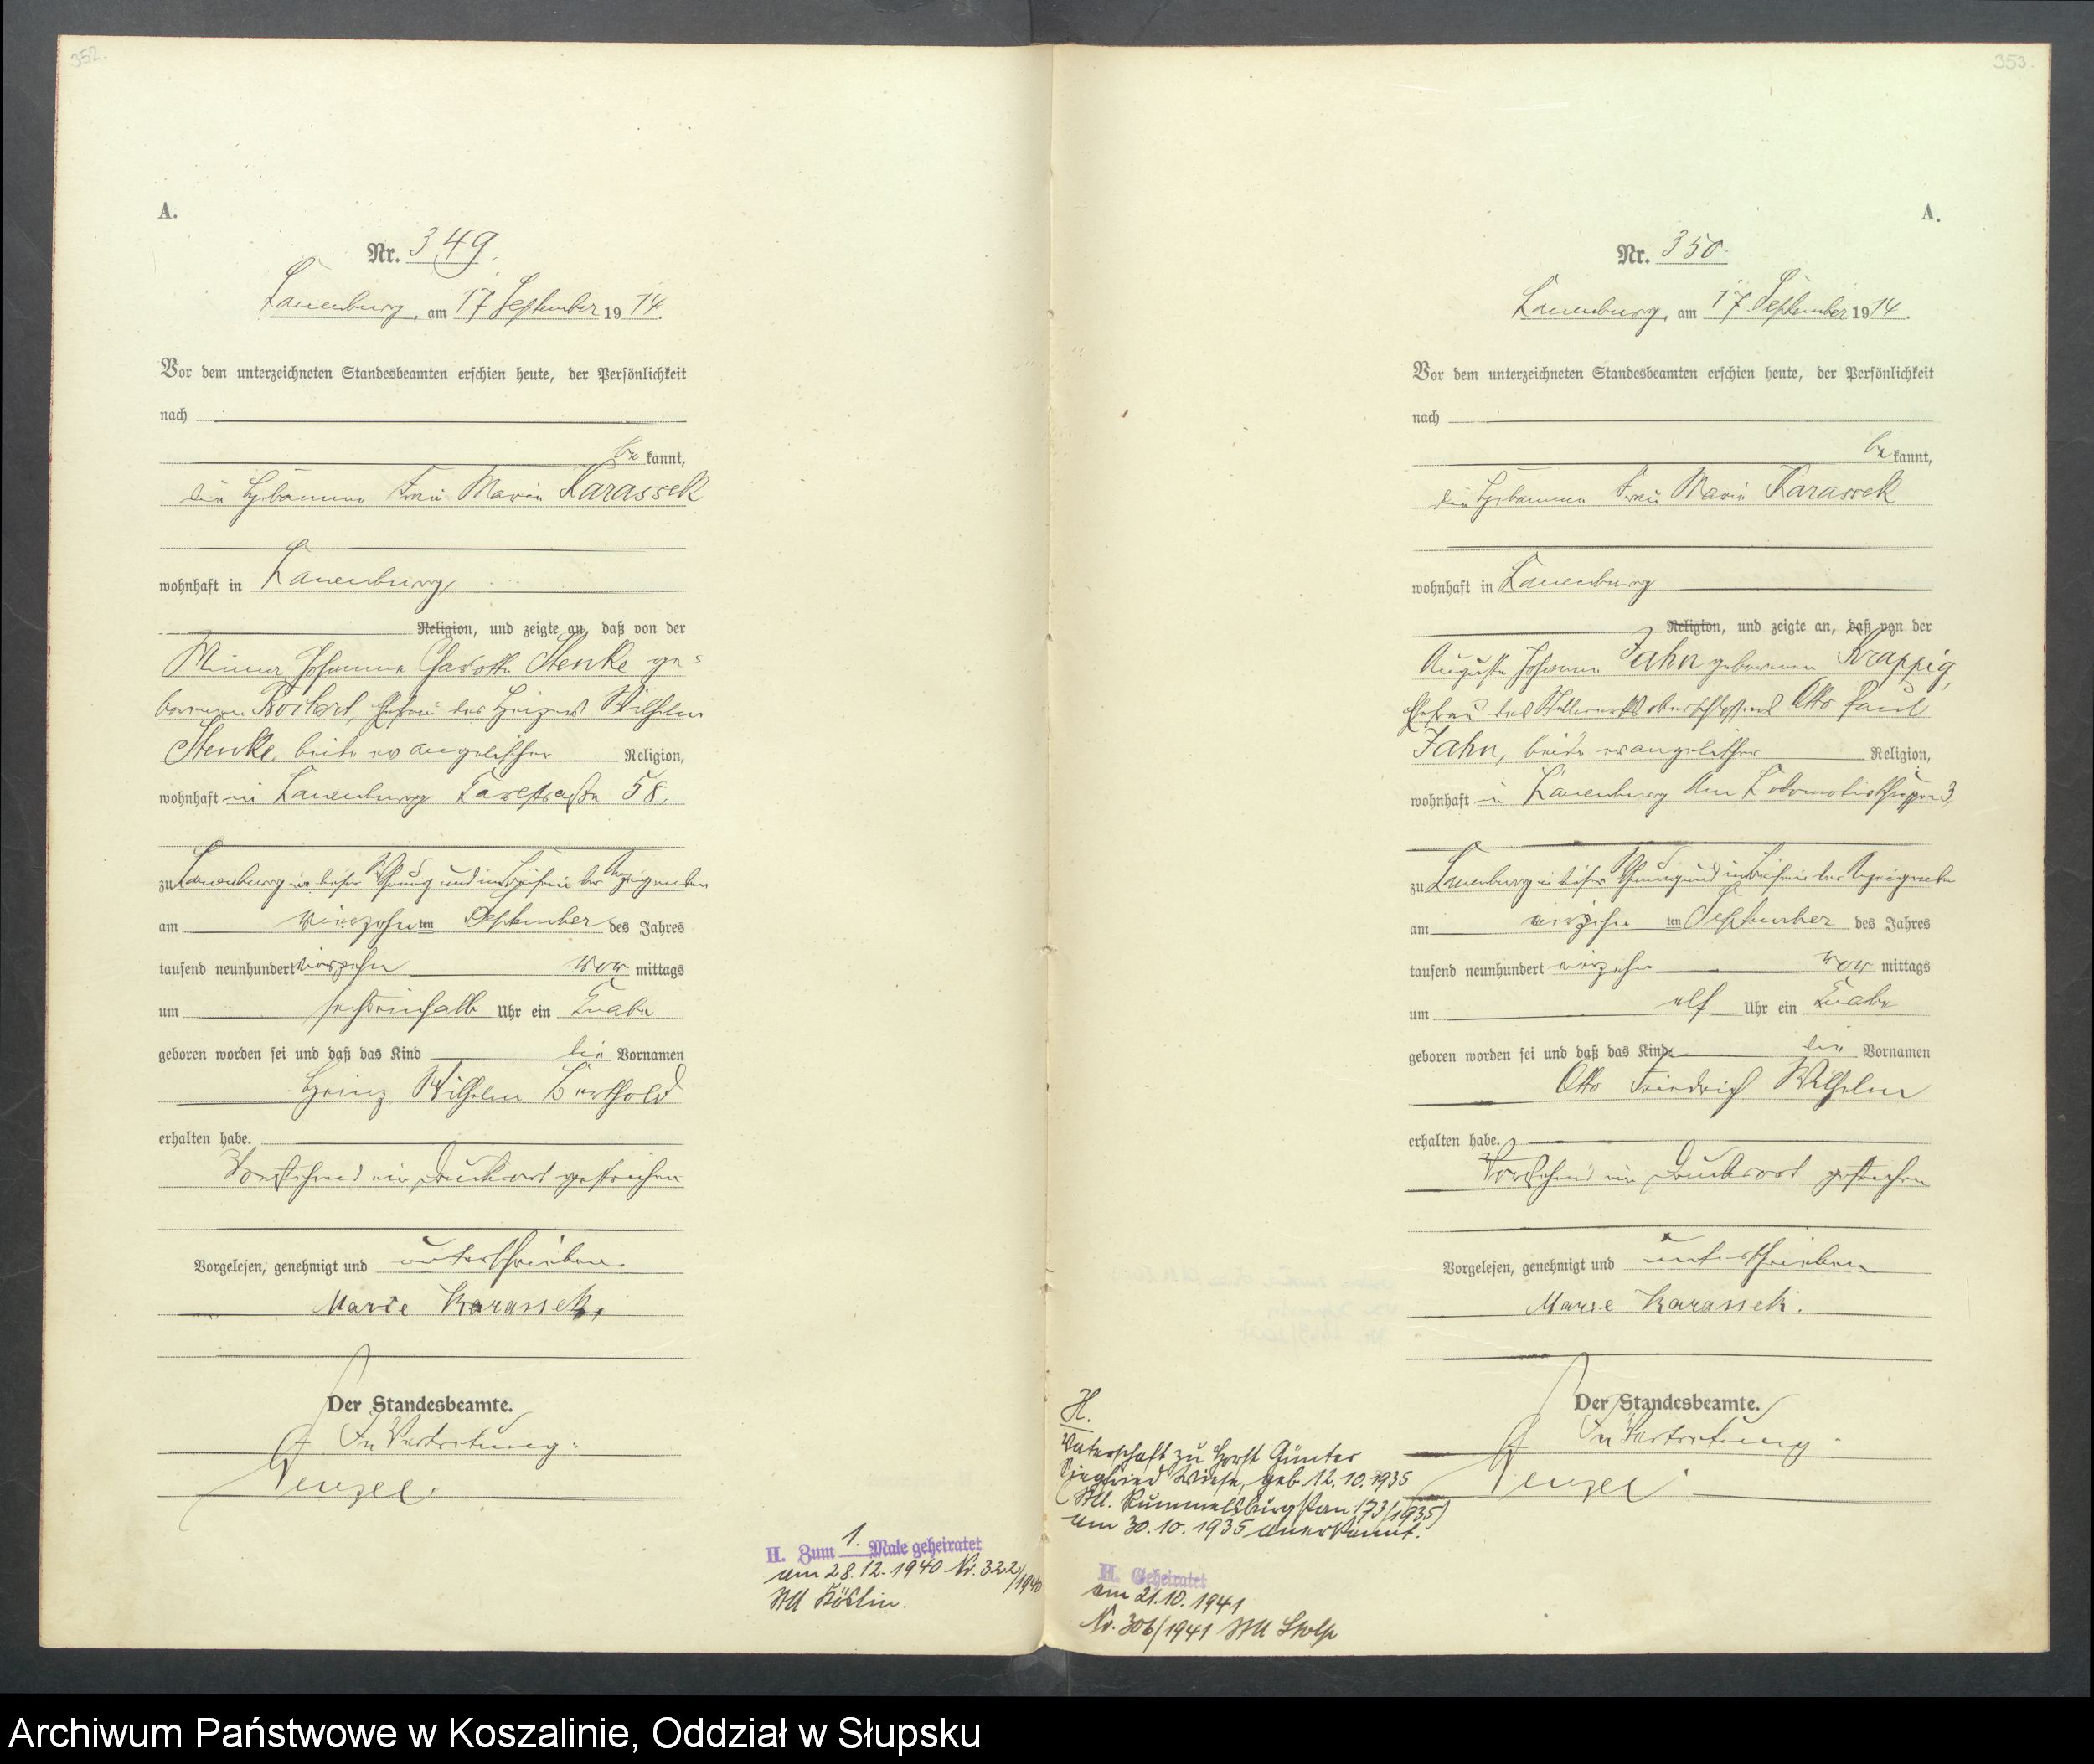 352.
A.
Nr. 349.
Lauenburg, am 17 September 1914.
Vor dem unterzeichneten Standesbeamten erschien heute, der Persönlichkeit
nach
be kannt,
die Hebamme Frau Marie Karassek
wohnhaft in Lauenburg
Religion, und zeigte an, daß von der
Minna Johanna Charlotte Stenke ge-
borenen Bochert, Ehefrau des Heizers Wilhelm
Stenke, beide evangelischer Religion,
wohnhaft in Lauenburg 58,
zu Lauenburg in dieser Wohnung und in Beisein der Anzeigenden
am vierzehnten September des Jahres
tausend neunhundert vierzehn vor mittags
um Uhr ein Knabe
geboren worden sei und daß das Kind die Vornamen
Heinz Wilhelm Berthold
erhalten habe.
Vorstehend ein Druckwort gestrichen
Vorgelesen, genehmigt und unterschrieben
Marie Karassek.
Der Standesbeamte.
In Vertretung:
Wenzel.
H. Zum 1. Male geheiratet
am 28.12.1940 Nr. 322/1940
StA Köslin.
353.
A.
Nr. 350.
Lauenburg, am 17 September 1914.
Vor dem unterzeichneten Standesbeamten erschien heute, der Persönlichkeit
nach
be kannt,
die Hebamme Frau Marie Karassek
wohnhaft in Lauenburg
Religion, und zeigte an, daß von der
Auguste Johanna Jahn geborenen Krappig,
Ehefrau des Otto Paul
Jahn, beide evangelischer Religion,
wohnhaft in Lauenburg Am Lokomotivschuppen 3,
zu Lauenburg in dieser Wohnung und in Beisein der Anzeigenden
am vierzehn ten September des Jahres
tausend neunhundert vierzehn vor mittags
um elf Uhr ein Knabe
geboren worden sei und daß das Kind die Vornamen
Otto Friedrich Wilhelm
erhalten habe.
Vorstehend ein Druckwort gestrichen
Vorgelesen, genehmigt und unterschrieben
Marie Karassek.
Der Standesbeamte.
In Vertretung
Wenzel.
H.
Vaterschaft zu Horst Günter
Siegfried Wiese, geb. 12.10.1935
(StA. Rummelsburg Pom 173/1935)
am 30.10.1935 anerkannt.
H. Geheiratet
am 21.10.1941
Nr. 306/1941 StA Stolp
Archiwum Państwowe w Koszalinie, Oddział w Słupsku